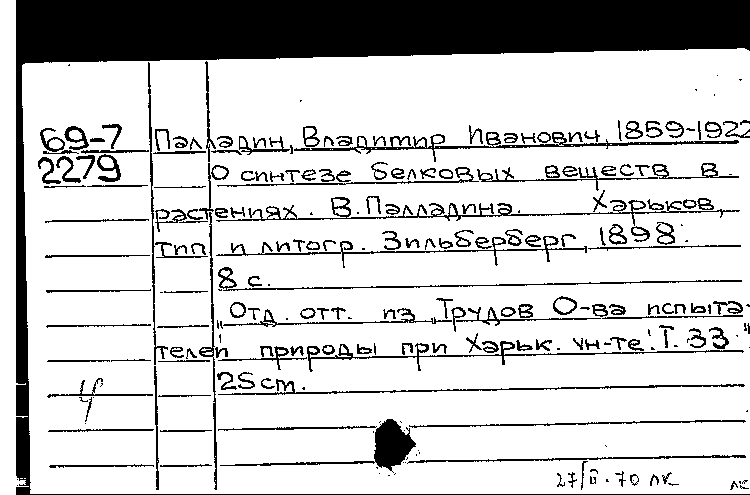 69-7 Палладин, Владимир Иванович, 1859-1922
2279 О синтезе белковых веществ в
растениях. В. Палладина. Харьков,
тип и литогр. Зильберберг, 1898.
8 с.
„Отд. отт. из „Трудов О-ва испыта-
телей природы при Харьк. ун-те". Т. 33."
25 cm.
4
27/II-70 ЛК ЛК